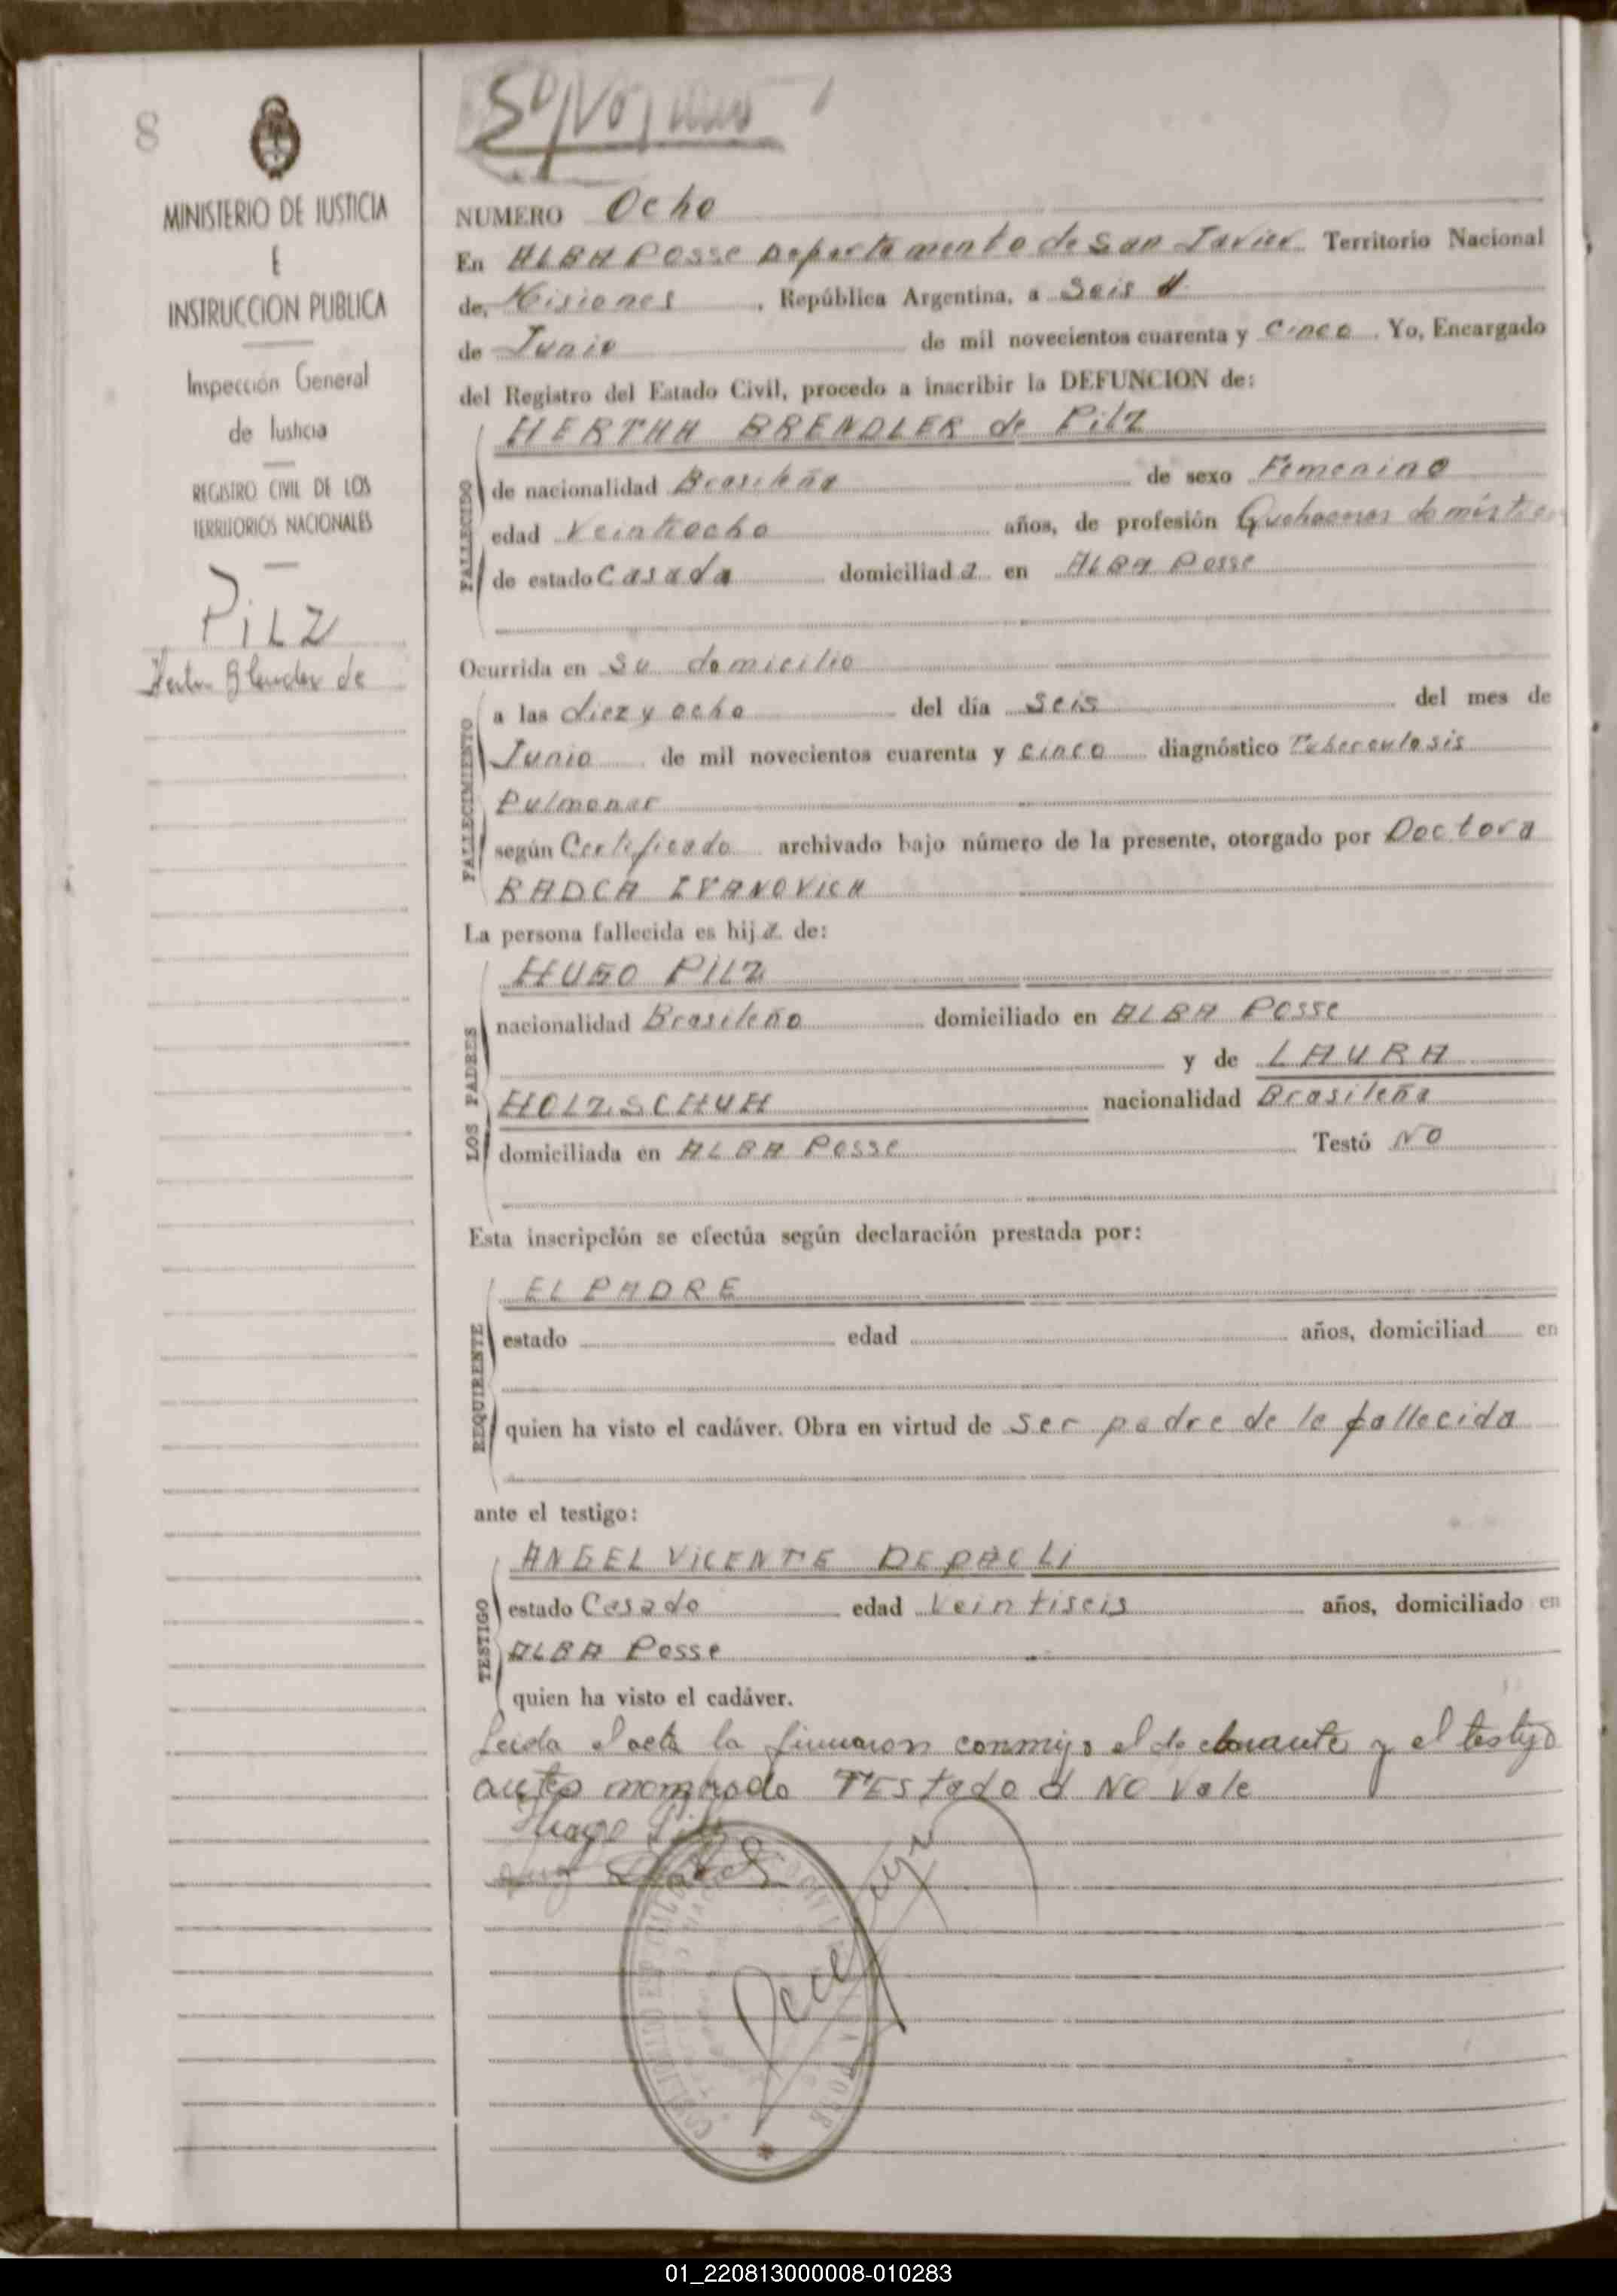 8
MINISTERIO DE JUSTICIA
E
INSTRUCCION PUBLICA
Inspección General
de Justicia
REGISTRO CIVIL DE LOS
TERRITORIOS NACIONALES
PILZ
de
NUMERO Ocho
En ALBA POSSE Departamento de San Javier Territorio Nacional
de, Misiones, República Argentina, a Seis d
de Junio de mil novecientos cuarenta y cinco. Yo, Encargado
del Registro del Estado Civil, procedo a inscribir la DEFUNCION de:
HERTHA BRENDLER de Pilz
FALLECIDO
de nacionalidad Brasileña de sexo Femenino
edad Veintiocho años, de profesión Quehaceres domésticos
de estado Casada domiciliada en ALBA Posse
Ocurrida en su domicilio
FALLECIMIENTO
a las diez y ocho del día seis del mes de
Junio de mil novecientos cuarenta y cinco diagnóstico Tuberculosis
Pulmonar
según Certificado archivado bajo número de la presente, otorgado por Doctora
RADCA IVANOVICH
La persona fallecida es hija de:
LOS PADRES
HUGO PILZ
nacionalidad Brasileño domiciliado en ALBA POSSE
y de LAURA
HOLZSCHUH nacionalidad Brasileña
domiciliada en ALBA Posse Testó NO
Esta inscripción se efectúa según declaración prestada por:
REQUIRENTE
EL PADRE
estado edad años, domiciliad en
quien ha visto el cadáver. Obra en virtud de ser padre de la fallecida
ante el testigo:
TESTIGO
ANGEL VICENTE DEPAOLI
estado Casado edad Veintiseis años, domiciliado en
ALBA Posse
quien ha visto el cadáver.
Leida el acta la firmaron conmigo el declarante y el testigo
antes nombrado TEStado d NO Vale
Hugo Pilz
01_220813000008-010283